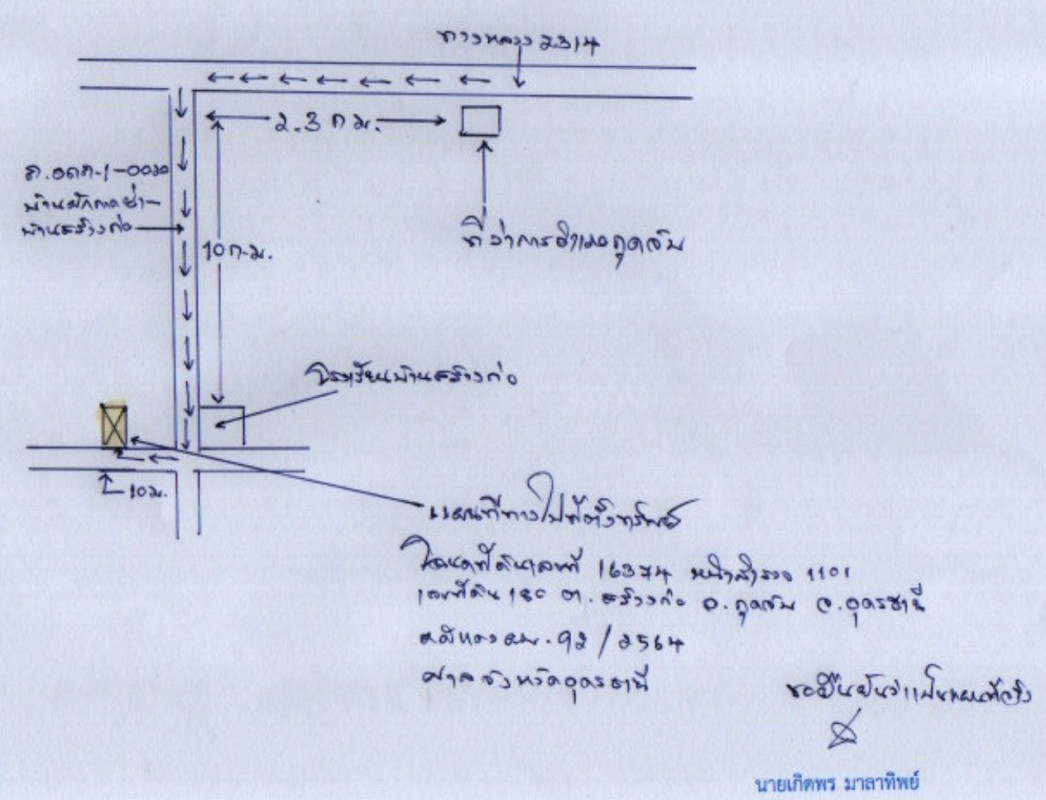 ทางหลวง 2314
2.3 กม.
ถ.อดถ-1-0030
บ้านผักกาดย่า-
บ้านสร้างก่อ
10 ก.ม.
ที่ว่าการอำเภอกุดจับ
โรงเรียนบ้านสร้างก่อ
10 ม.
แผนที่ทางไปที่ตั้งทรัพย์
โฉนดที่ดินเลขที่ 16374 หน้าสำรวจ 1101
เลขที่ดิน 180 ต.สร้างก่อ อ.กุดจับ จ.อุดรธานี
คดีแดง ผบ.92/2564
ศาลจังหวัดอุดรธานี
ขอยืนยันว่าเป็นแผนที่จริง
นายเกิดพร มาลาทิพย์